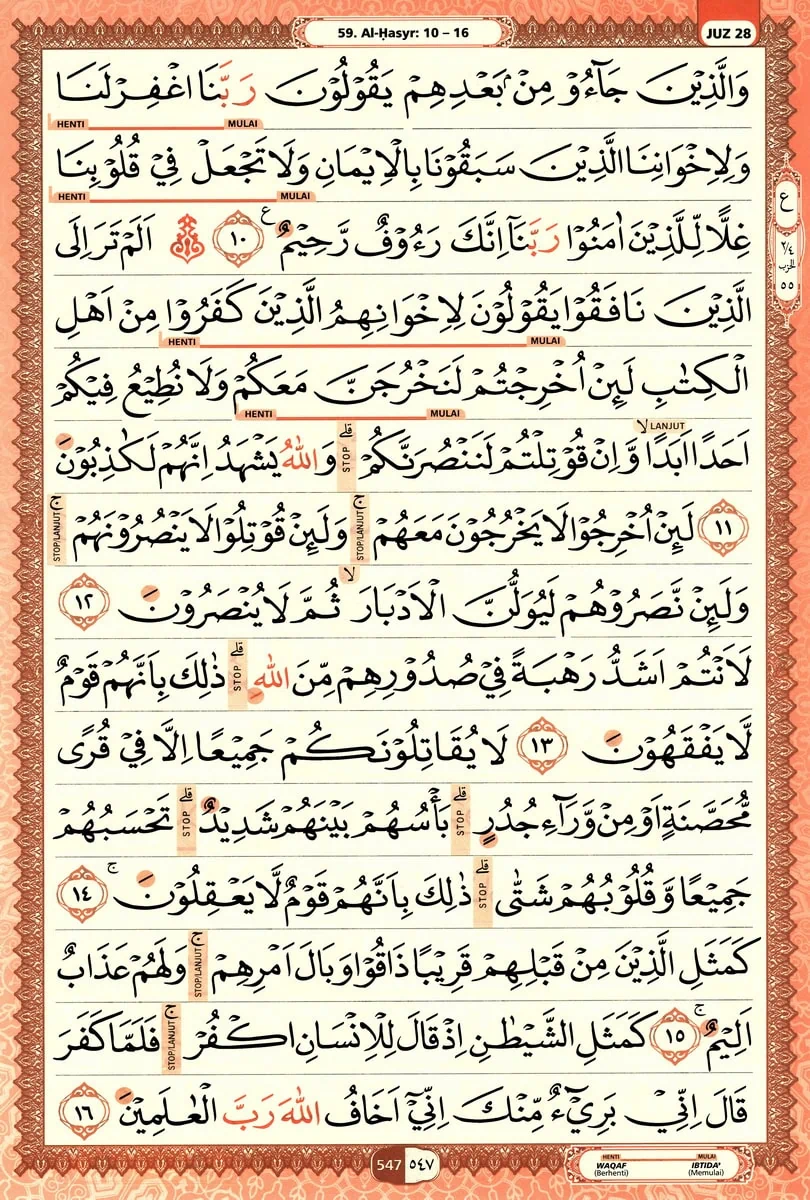 59. Al-Ḥasyr: 10 – 16
JUZ 28
وَالَّذِيْنَ جَاۤءُوْ مِنْۢ بَعْدِهِمْ يَقُوْلُوْنَ رَبَّنَا اغْفِرْ لَنَا
HENTI MULAI
وَلِاِخْوَانِنَا الَّذِيْنَ سَبَقُوْنَا بِالْاِيْمَانِ وَلَا تَجْعَلْ فِيْ قُلُوْبِنَا
HENTI MULAI
غِلًّا لِّلَّذِيْنَ اٰمَنُوْا رَبَّنَآ اِنَّكَ رَءُوْفٌ رَّحِيْمٌ ࣖ ١٠ اَلَمْ تَرَ اِلَى
ع
٢/٤
الحزب
٥٥
الَّذِيْنَ نَافَقُوْا يَقُوْلُوْنَ لِاِخْوَانِهِمُ الَّذِيْنَ كَفَرُوْا مِنْ اَهْلِ
HENTI MULAI
الْكِتٰبِ لَىِٕنْ اُخْرِجْتُمْ لَنَخْرُجَنَّ مَعَكُمْ وَلَا نُطِيْعُ فِيْكُمْ
HENTI MULAI
LANJUT
اَحَدًا اَبَدًاۙ وَّاِنْ قُوْتِلْتُمْ لَنَنْصُرَنَّكُمْۗ STOP وَاللّٰهُ يَشْهَدُ اِنَّهُمْ لَكٰذِبُوْنَ
١١ لَىِٕنْ اُخْرِجُوْا لَا يَخْرُجُوْنَ مَعَهُمْۚ STOP/LANJUT وَلَىِٕنْ قُوْتِلُوْا لَا يَنْصُرُوْنَهُمْۚ STOP/LANJUT
وَلَىِٕنْ نَّصَرُوْهُمْ لَيُوَلُّنَّ الْاَدْبَارَۙ ثُمَّ لَا يُنْصَرُوْنَ ١٢
لَاَنْتُمْ اَشَدُّ رَهْبَةً فِيْ صُدُوْرِهِمْ مِّنَ اللّٰهِۗ STOP ذٰلِكَ بِاَنَّهُمْ قَوْمٌ
لَّا يَفْقَهُوْنَ ١٣ لَا يُقَاتِلُوْنَكُمْ جَمِيْعًا اِلَّا فِيْ قُرًى
مُّحَصَّنَةٍ اَوْ مِنْ وَّرَاۤءِ جُدُرٍۗ STOP بَأْسُهُمْ بَيْنَهُمْ شَدِيْدٌۗ STOP تَحْسَبُهُمْ
جَمِيْعًا وَّقُلُوْبُهُمْ شَتّٰىۗ STOP ذٰلِكَ بِاَنَّهُمْ قَوْمٌ لَّا يَعْقِلُوْنَۚ ١٤
كَمَثَلِ الَّذِيْنَ مِنْ قَبْلِهِمْ قَرِيْبًا ذَاقُوْا وَبَالَ اَمْرِهِمْۚ STOP/LANJUT وَلَهُمْ عَذَابٌ
اَلِيْمٌۚ ١٥ كَمَثَلِ الشَّيْطٰنِ اِذْ قَالَ لِلْاِنْسَانِ اكْفُرْۚ STOP/LANJUT فَلَمَّا كَفَرَ
قَالَ اِنِّيْ بَرِيْۤءٌ مِّنْكَ اِنِّيْٓ اَخَافُ اللّٰهَ رَبَّ الْعٰلَمِيْنَ ١٦
547 ٥٤٧
HENTI MULAI
WAQAF IBTIDA'
(Berhenti) (Memulai)